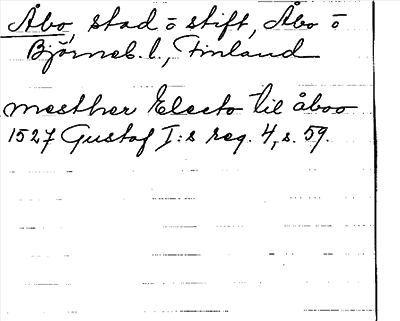 Åbo, stad o stift, Åbo o
Björneb. l., Finland
mesther Electo til åboo
1527 Gustaf I:s reg. 4, s. 59.